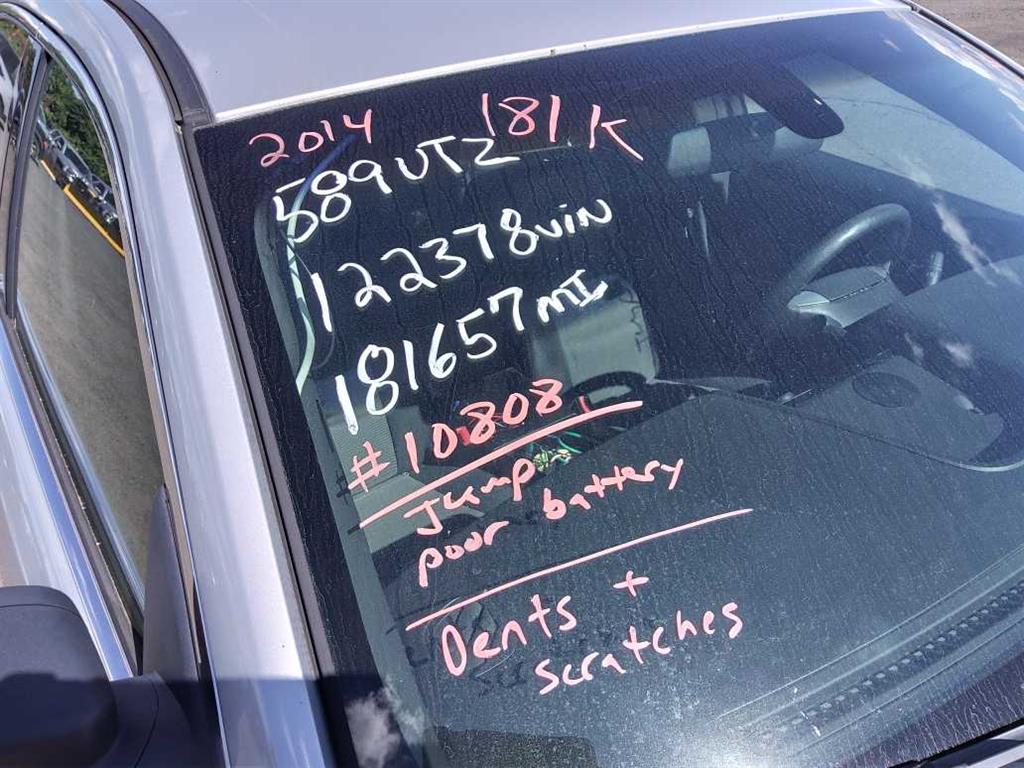 2014 181K
589UTZ
122378VIN
181657MI
#10808
Jump
poor battery
Dents +
scratches